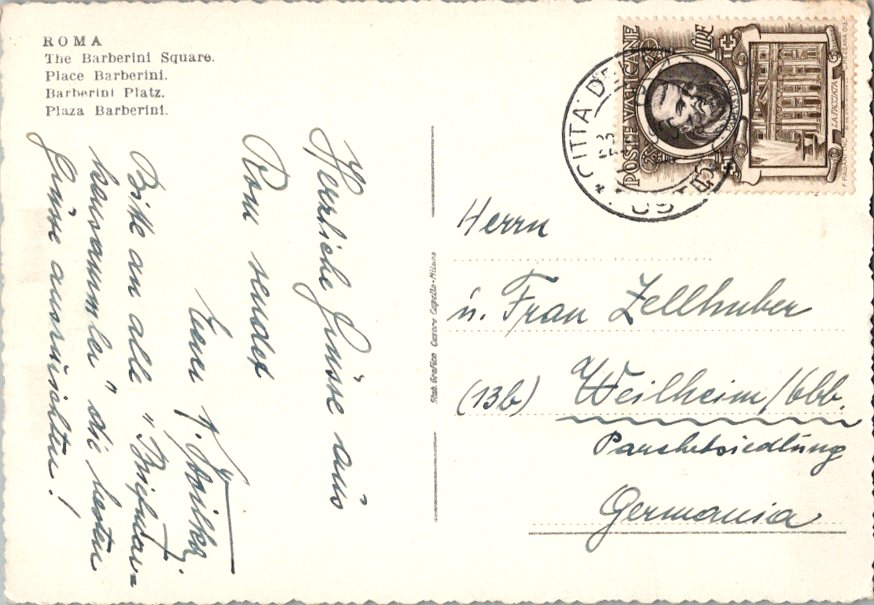 ROMA
The Barberini Square.
Place Barberini.
Barberini Platz.
Plaza Barberini.
Herrliche Grüsse aus
Rom sendet
Euer
Bitte an alle "Briefmar-
kensammler" die besten
Grüsse ausrichten!
Stab. Grafico Cesare Capello - Milano
POSTE VATICANE
LIRE
LA FACCIATA
CITTA D
POSTE
Herrn
u. Frau Zellhuber
(13b) Weilheim/Obb.
Parchetsiedlung
Germania